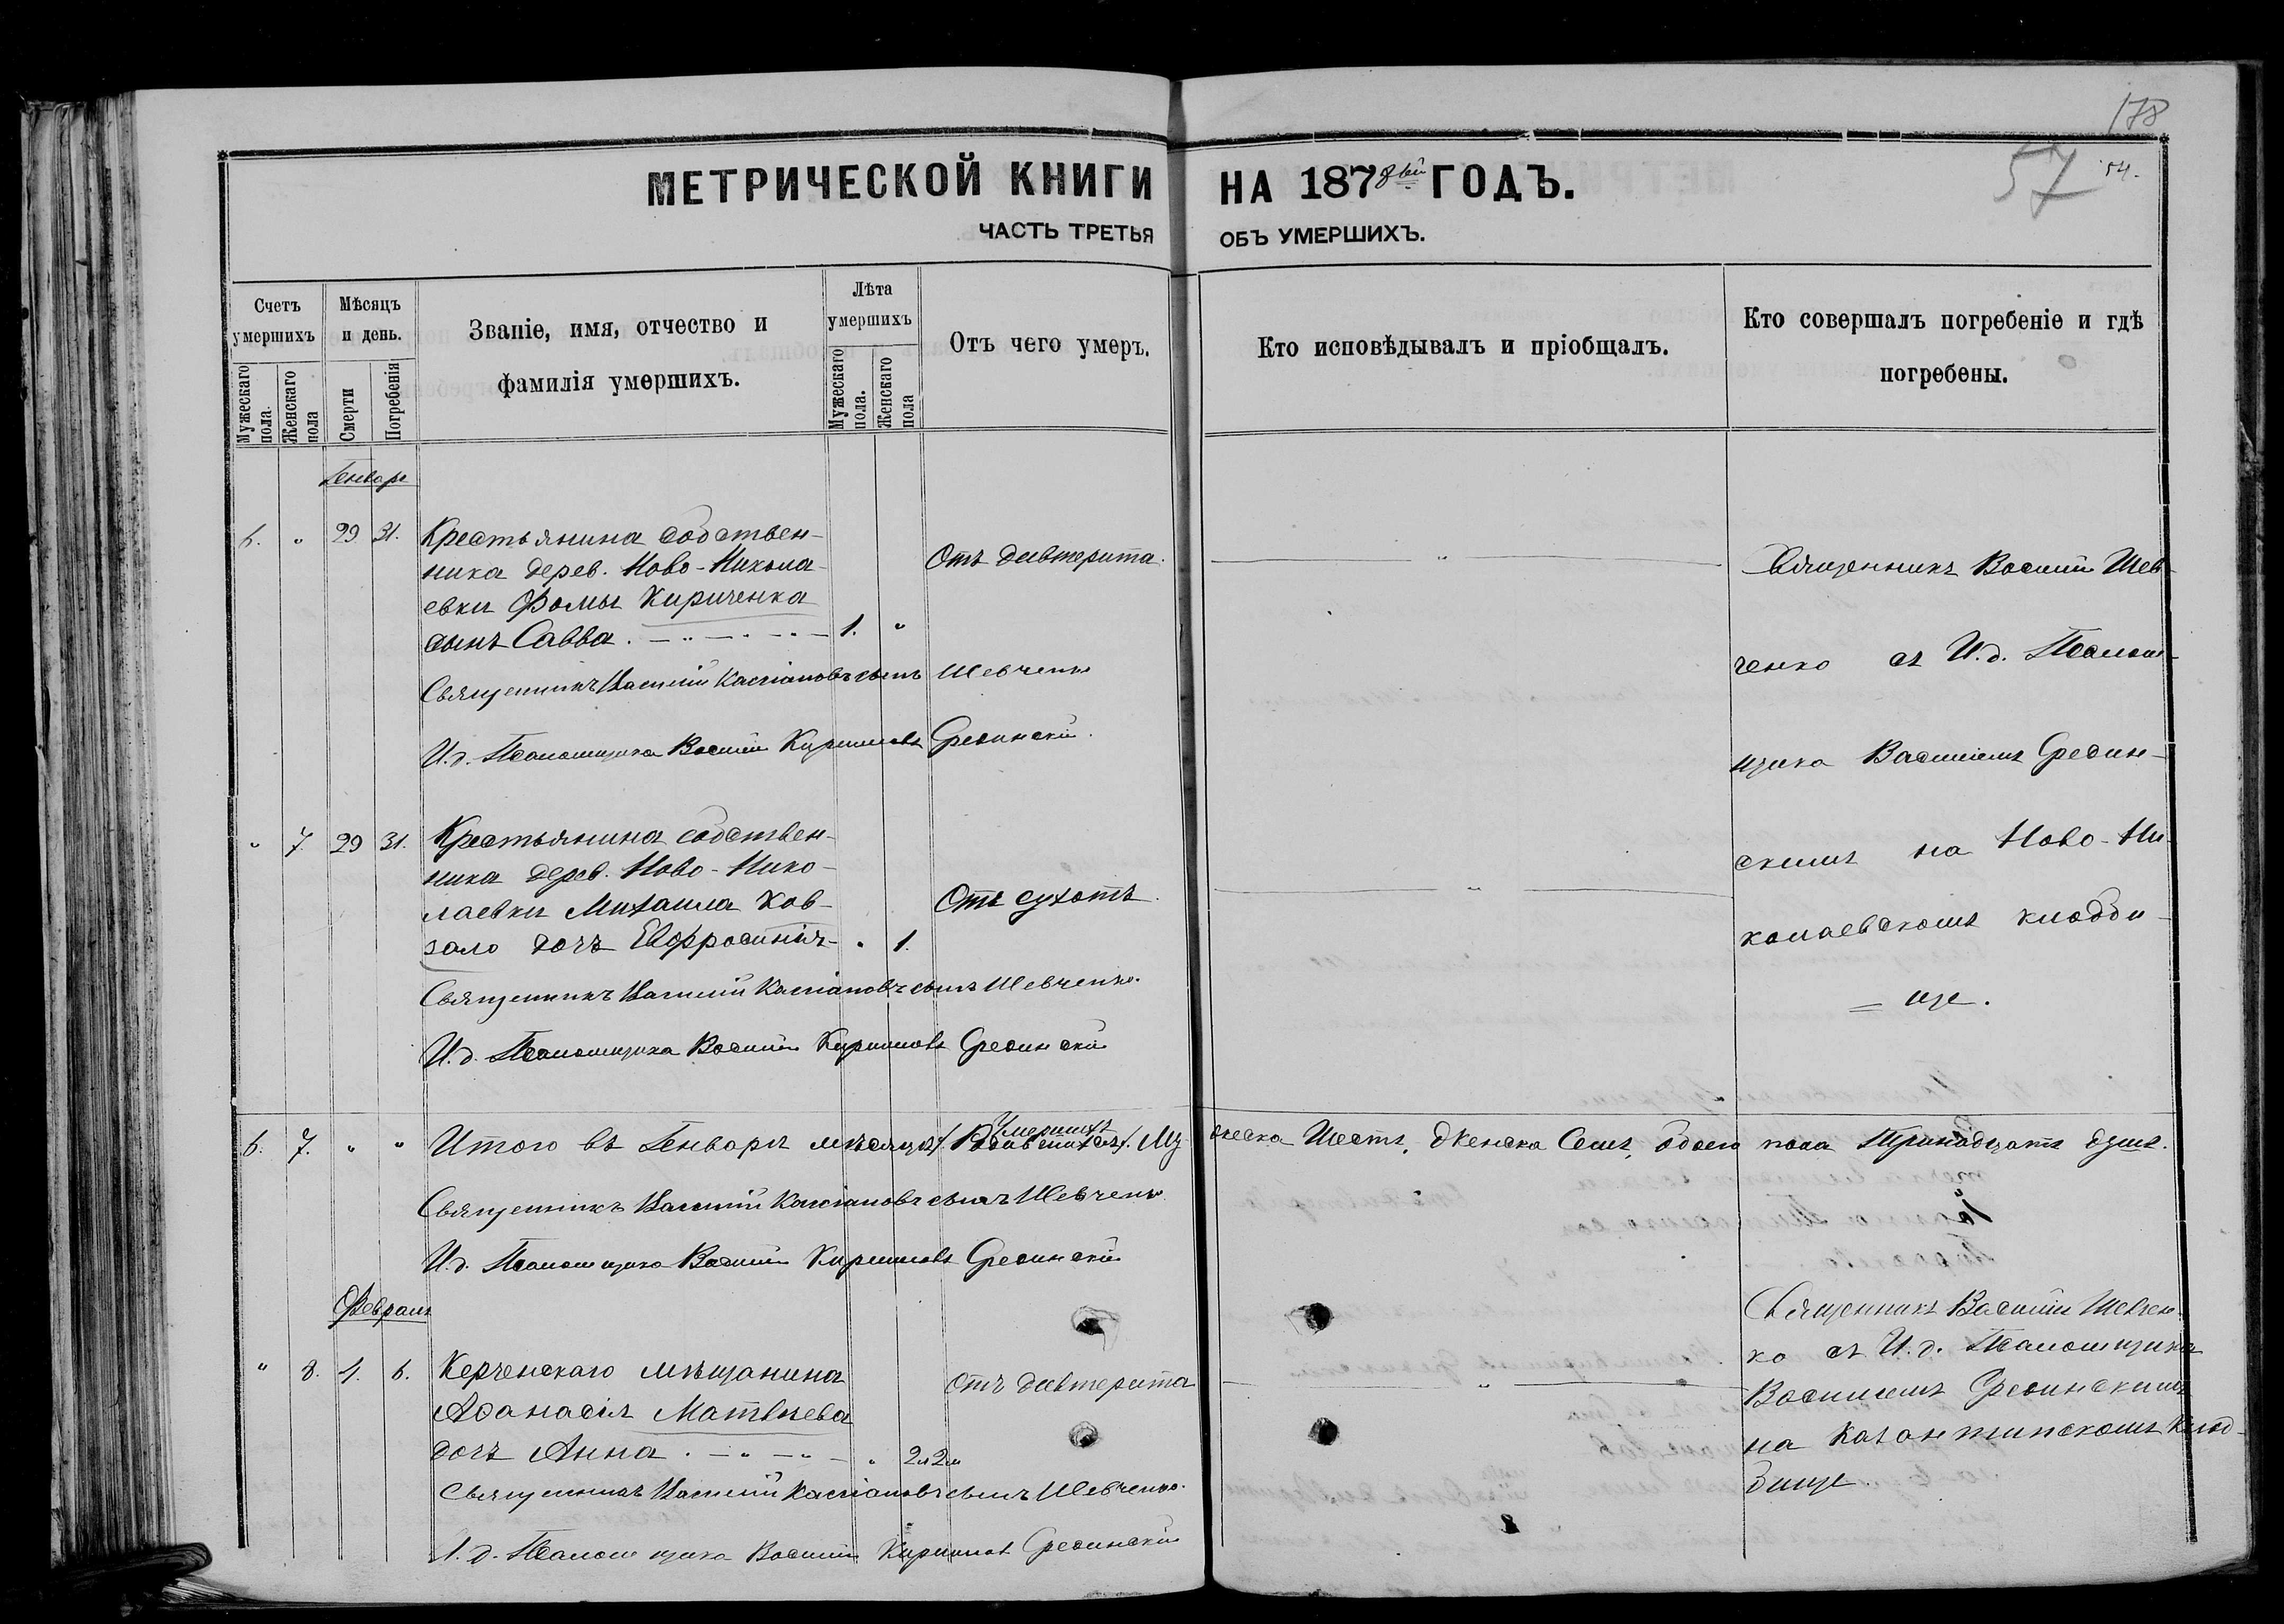 178
57 54.
МЕТРИЧЕСКОЙ КНИГИ НА 1878й ГОДЪ.
ЧАСТЬ ТРЕТЬЯ ОБЪ УМЕРШИХЪ.
Счетъ умершихъ
Мужескаго пола.
Женскаго пола
Мѣсяцъ и день.
Смерти
Погребенія
Званіе, имя, отчество и
фамилія умершихъ.
Лѣта умершихъ
Мужескаго пола.
Женскаго пола
Отъ чего умеръ.
Кто исповѣдывалъ и пріобщалъ.
Кто совершалъ погребеніе и гдѣ
погребены.
Генварь
6. " 29 31. Крестьянина собствен-
ника дерев. Ново-Никола-
евки Фомы Кириченка
сынъ Савва. 1. "
Отъ дивтерита.
"
Священникъ Василій Кассіановъ сынъ Шевченко
И. д. Псаломщика Василій Кирилловъ Грединскій.
Священникъ Василій Шев-
ченко съ И. д. Псалом-
щика Василіемъ Гредин-
скимъ на Ново-Ни-
колаевскомъ кладби-
= ще.
" 7. 29 31. Крестьянина собствен-
ника дерев. Ново-Нико-
лаевки Михаила Ков-
зало дочь Евфросинія " 1.
Отъ сухотъ.
"
Священникъ Василій Кассіановъ сынъ Шевченко.
И. д. Псаломщика Василій Кирилловъ Грединскій
6. 7. " " Итого въ Генварѣ мѣсяцѣ умершихъ Му жеска Шесть, Женска Семь, обоего пола Тринадцать душъ.
Священникъ Василій Кассіановъ сынъ Шевченко
И. д. Псаломщика Василій Кирилловъ Грединскій
Февраль
" 8. 4. 6. Керченскаго мѣщанина
Афанасія Матвѣева
дочь Анна. " 2л 2м
Отъ дивтерита
"
Священникъ Василій Кассіановъ сынъ Шевченко.
И. д. Псаломщика Василій Кирилловъ Грединскій
Священникъ Василій Шевчен-
ко съ И. д. Псаломщика
Василіемъ Грединскимъ
на Казантипскомъ Клад-
бище.